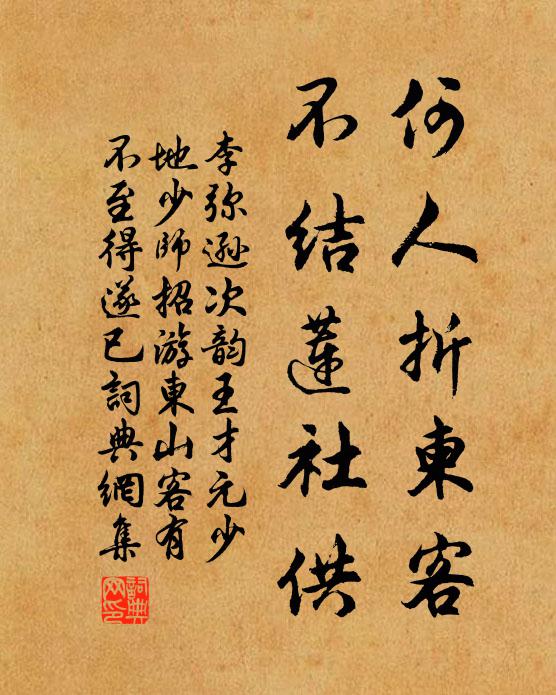 何人折東客
不結蓮社供
李弥遜次韵王才元少
地少師招游東山客有
不至得遂已詞典網集
詞典网印